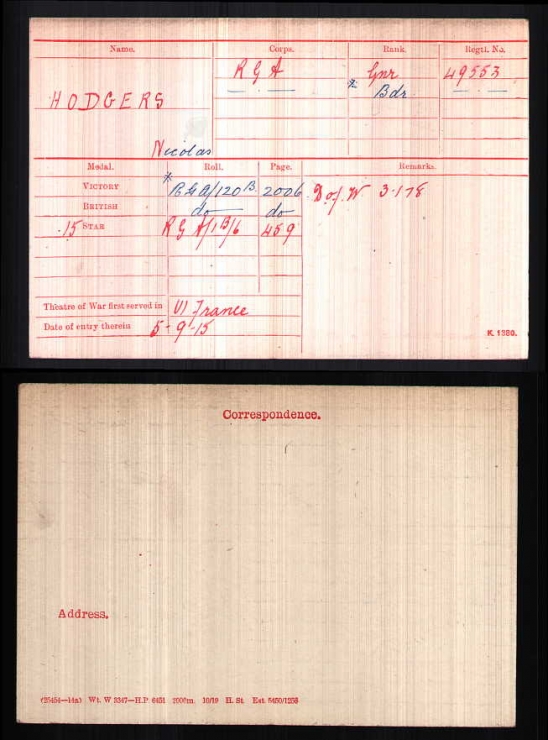 Name. Corps. Rank. Regtl. No.
R G A Gnr 49553
* Bdr
HODGERS
Nicolas
Medal. Roll. Page. Remarks.
VICTORY * RGA/120 B. 2006 D of W 3·1·78
BRITISH do do
·15 STAR R G A/1 B/6 459
Theatre of War first served in (1) France
Date of entry therein 5-9-15
K. 1380.
Correspondence.
Address.
(25454—14a) Wt. W 3347—H.P. 6451 2000m. 10/19 H. St. Est. 5450/1258